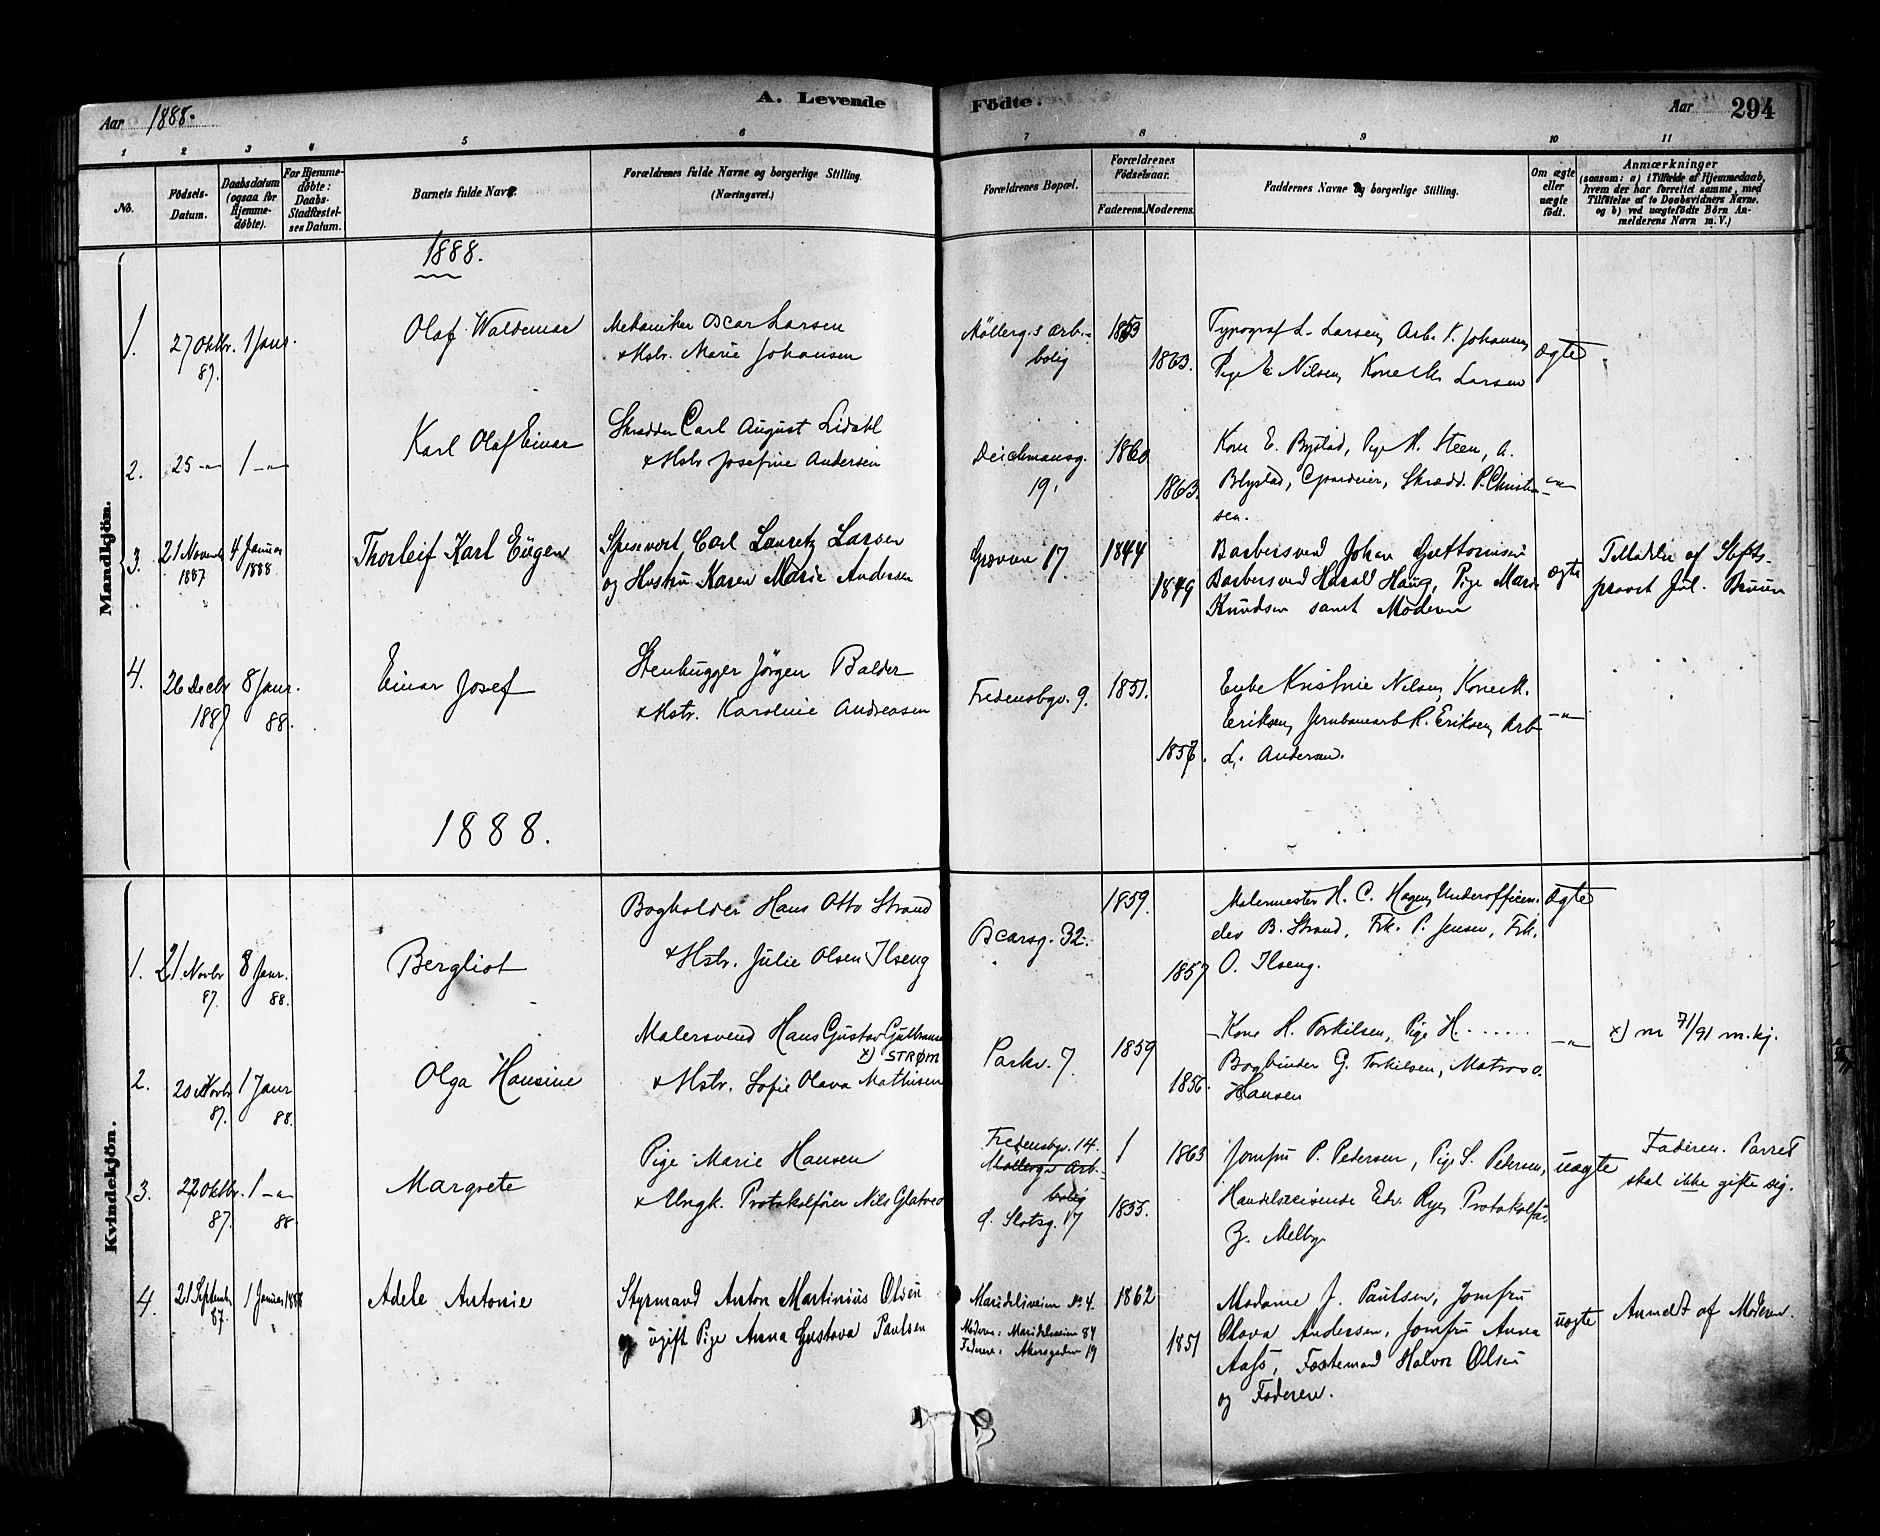 Aar 1888.
A. Levende
Födte.
Aar 294
1 2 3 4 5 6 7 8 9 10 11
No.
Födsels-Datum.
Daabsdatum (ogsaa for Hjemme-döbte).
For Hjemme-döbte: Daabs-Stadfæstel-ses Datum.
Barnets fulde Navn.
Forældrenes fulde Navne og borgerlige Stilling. (Næringsvei.)
Forældrenes Bopæl.
Forældrenes Födselsaar.
Faderens. Moderens.
Faddernes Navne og borgerlige Stilling.
Om ægte eller uægte födt.
Anmærkninger
(saasom: a) i Tilfælde af Hjemmedaab,
hvem der har forrettet samme, med
Tilföielse af to Daabsvidners Navne.
og b) ved uægtefödte Börn An-
melderens Navn m. V.)
Mandkjön.
1888.
1. 27 Oktbr. 87. 1 Janr.
Olaf Waldemar
Mekaniker Oscar Larsen
& Hstr. Marie Johansen
Möllerg.s Arb.-
bolig
1853
1863.
Typograf L. Larsen, Arb. K. Johansen,
Pige E. Nilsen, Kone M. Larsen
ægte
2. 25 -"- 1 -"-
Karl Olaf Einar
Skrædder Carl August Lidahl
& Hstr Josefine Andersen
Deichmansg.
19.
1860
1863.
Kone E. Bystad, Pige H. Steen, A.
Blystad, Skrædd. P. Christen-
sen.
-"-
3. 21 Novemb 1887 4 Januar 1888
Thorleif Karl Eugen
Spisevert Carl Lauretz Larsen
og Hustru Karen Marie Andersen
Grænsen 17.
1844
1849
Barbersvend Johan Guttormsen
Barbersvend Harald Haug, Pige Marie
Knudsen samt Moderen
ægte
Tilladelse af Stifts-
provst Jul. Bruun
4. 26 Decbr 1887 8 Janr. 88.
Einar Josef
Stenhugger Jörgen Balder
& Hstr. Karoline Andreasen
Fredensbgv. 9.
1851.
1857.
Enke Kristine Nilsen, Kone M.
Eriksen, Jernbanearb R. Eriksen, Arb
L. Andersen.
-"-
1888.
Kvindekjön.
1. 21 Novbr 87. 8 Janr. 88.
Bergliot
Bogholder Hans Otto Strand
& Hstr. Julie Olsen Ilseng
Oscarsg. 32.
1859.
1857
Malermester H. C. Hagen, Underofficers-
elev B. Strand, Frk. P. Jensen, Frk.
O. Ilseng.
ægte
2. 20 Novbr 87. 1 Janr 88.
Olga Hansine
Malersvend Hans Gustav Gulbransen
x) STRØM
& Hstr. Sofie Olava Mathisen
Parkv. 7
1859
1856.
Kone H. Torkilsen, Pige H. ......
Bogbinder G. Torkilsen, Matros O.
Hansen
-"-
x) m 71/91 m.kj.
3. 27 Oktbr. 87. 1 -"- 88.
Margrete
Pige Marie Hansen
& Ungk. Protokolförer Nils Glatved
Fredensbgv. 14.
Möllergs Arb.
bolig
d. Slotsg. 17
1863
1855.
Jomfru P. Pedersen, Pige S. Petersen,
Handelsreisende Edv. Rye, Protokolför.
Z. Melby.
uægte
Faderen. Parret
skal ikke gifte sig.
4. 21 Septembr 87. 1 Januar 1888
Adele Antonie
Styrmand Anton Martinius Olsen
og ugift Pige Anna Gustava Paulsen
Maridalsveien No 4.
Moderen: Maridalsveien 84
Faderen: Akersgaden 19
1862
1851
Madame J. Paulsen, Jomfru
Olava Andersen, Jomfru Anna
Aass, Fostemand Halvor Olsen
og Faderen.
uægte
Anmeldt af Moderen.